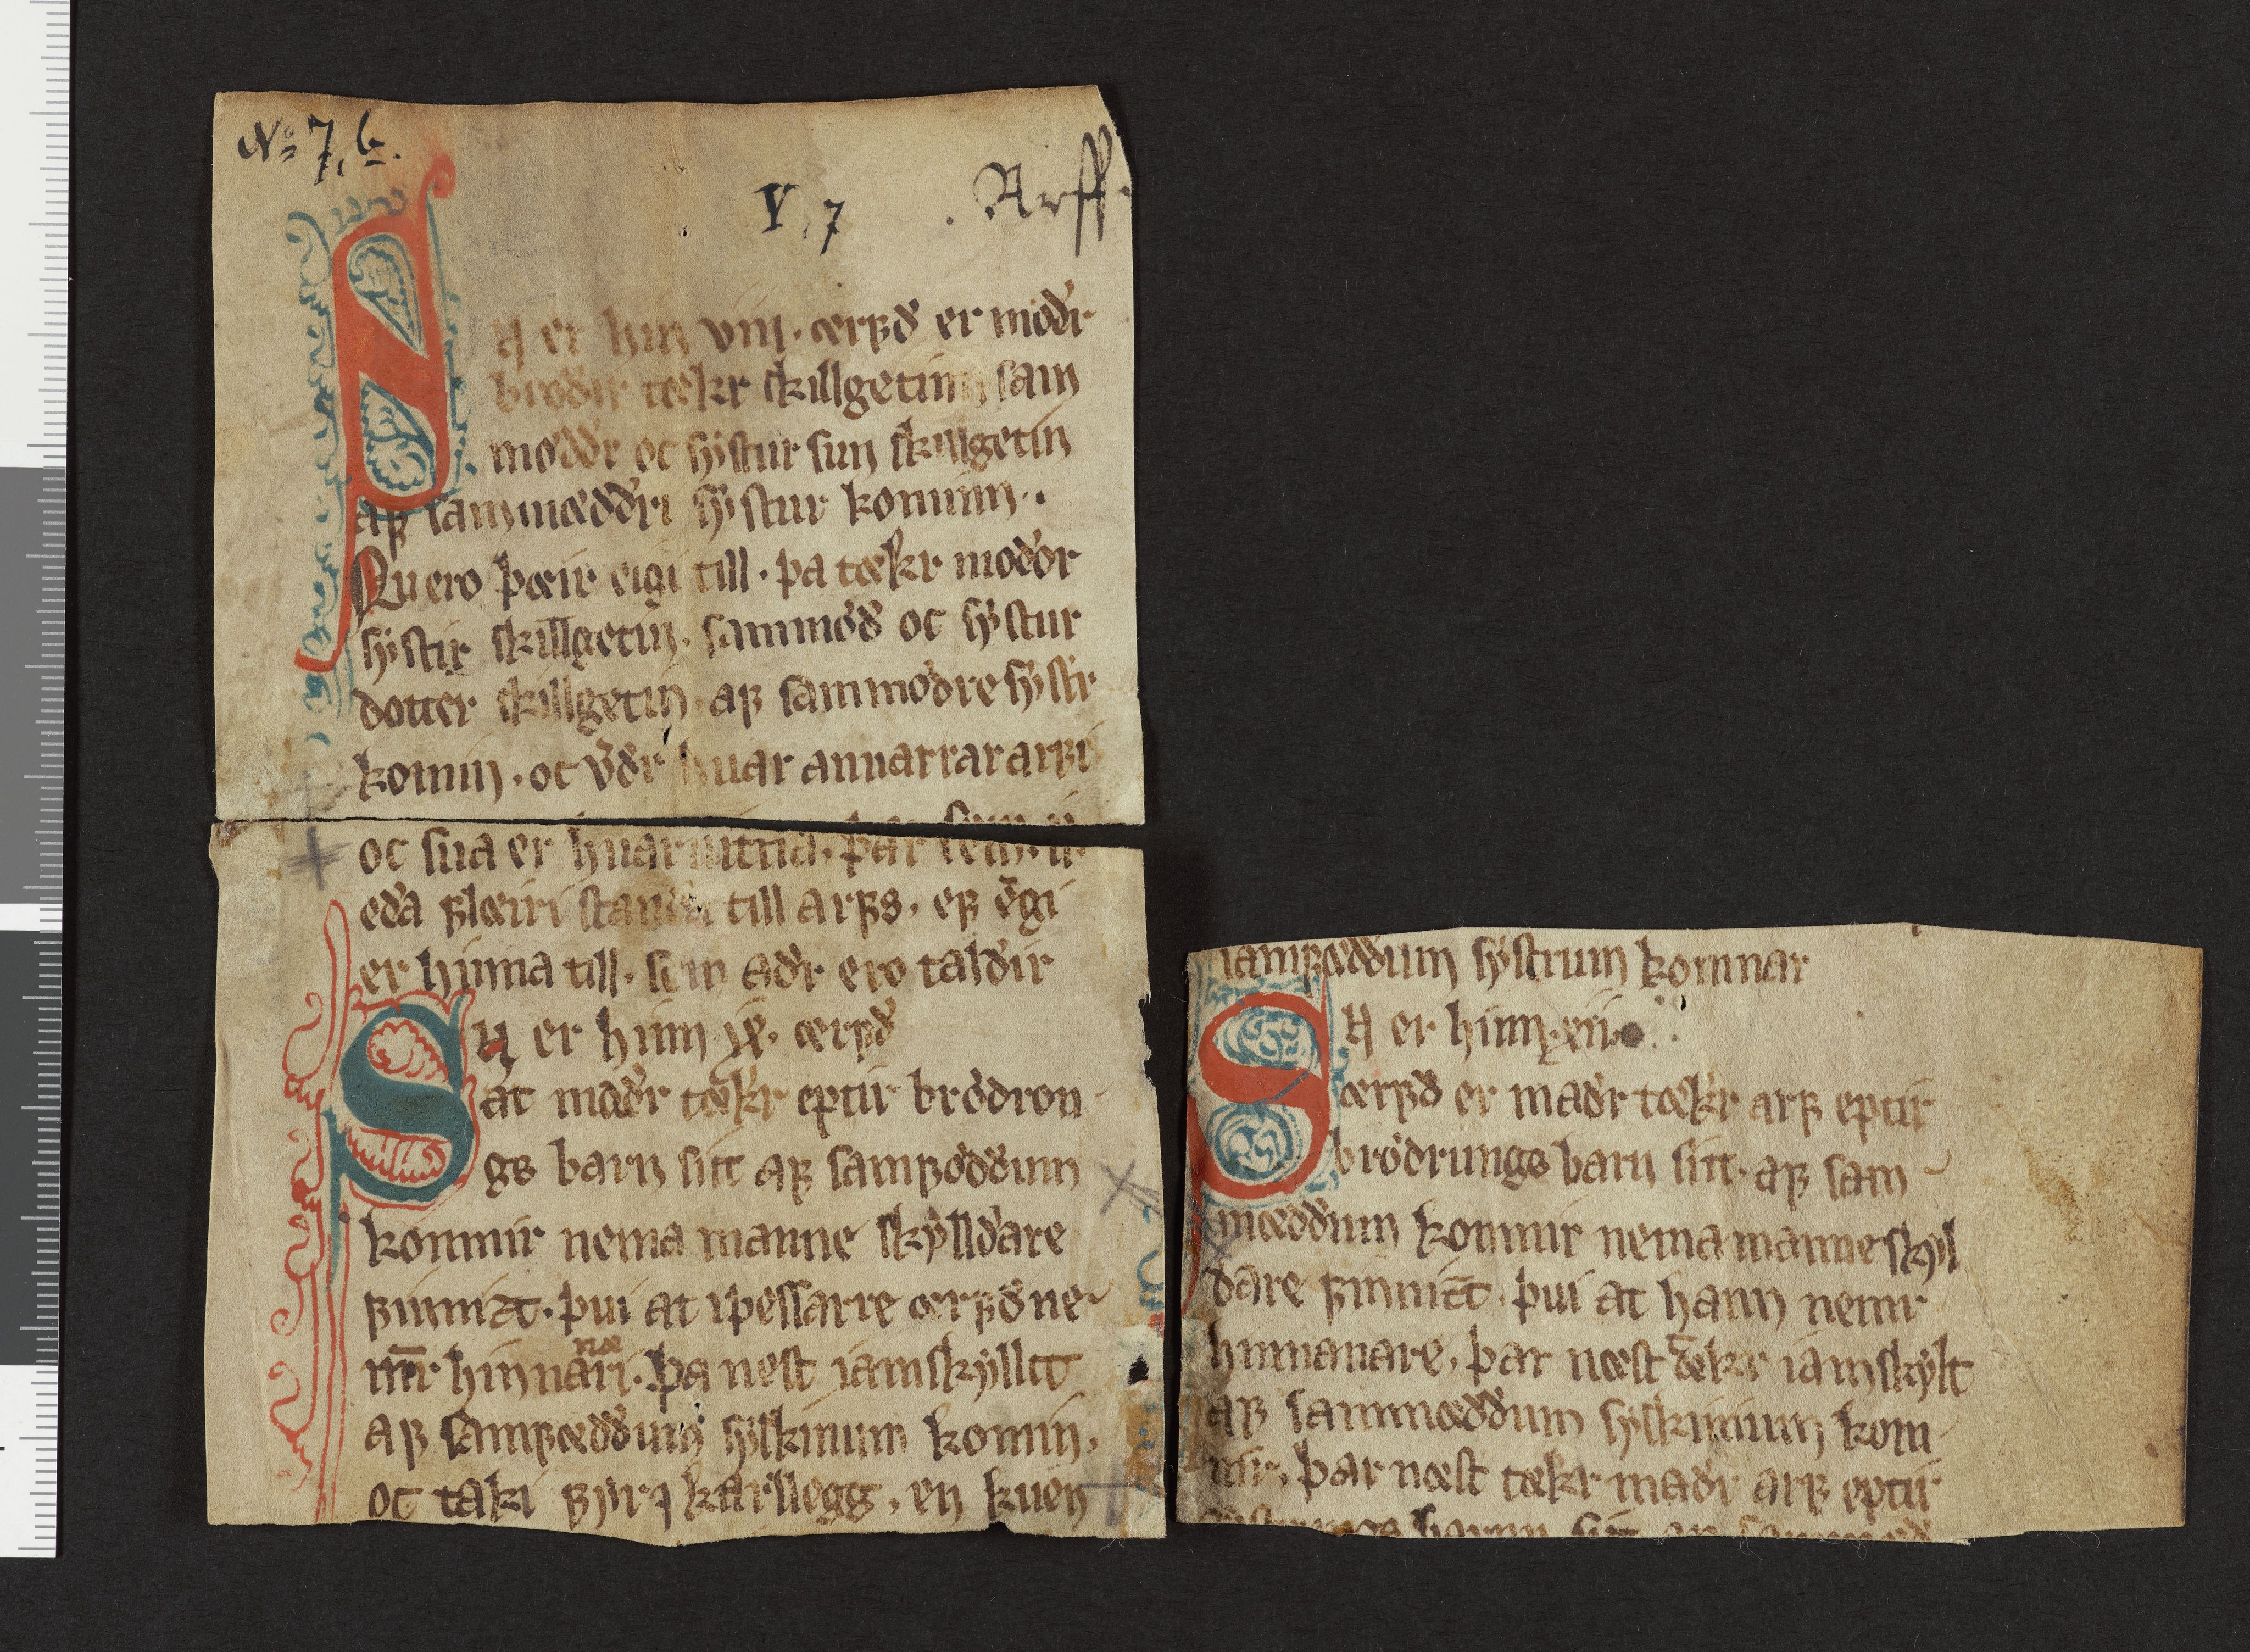 No 7, b.
Y, 7 . Arff.
Su er hin viii. ærfð er moðr
broðir tækr skillgetinn sam
mœðdr oc systur sun skillgetin
af sammæðdri systur komin.
Nu ero þæir eigi till. þa tækr moðor
systir skillgetin. sammøð oc systur
dotter skillgetin af sammøðre systr
komin. oc vðr huar annarrar arfi
oc sua er huarvitna. þar sem. ii.
eða flæiri standa till arfs. ef ęigi
er hinna till. sem aðr ero talðir
Su er hinn ix. ærfð
at maðr tækr eptir brøðron
gs barn sitt af samføðdum
kommir nema manne skylldare
finnizt. þui at i þessarre ærfð ne
mr hinnari. næ þa nest iamskylltt
af samfæðdum syskinum komin.
oc taki fyrr karllegg. en kuen
iamfæðdum systrum komnar
Su er hinn. xii.
ærfð er maðr tækr arf eptir
brøðrungs barn sitt. af sam
mæðdum kommir nema manne skyl
dare finnizt. þui at hann nemr
hinnanare. þar næst tækr iamskylt
af sammæðdum syskinum kom
nir. þar næst tækr maðr arf eptir